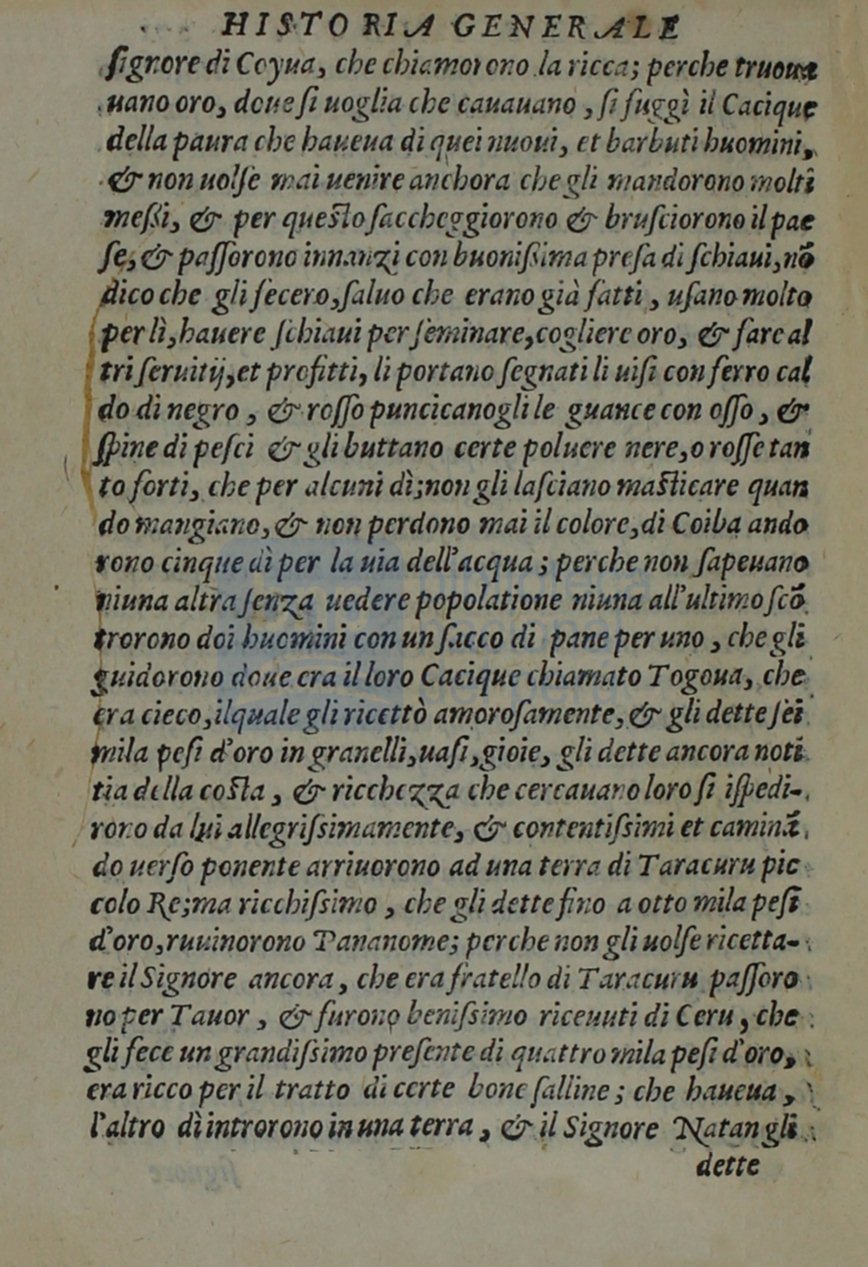 HISTORIA GENERALE
ſignore di Coyua, che chiamorono la ricca; perche truoua
uano oro, doue ſi uoglia che cauauano, ſi fuggì il Cacique
della paura che haueua di quei nuoui, et barbuti huomini,
& non uolſe mai uenire anchora che gli mandorono molti
meſſi, & per queſto ſaccheggiorono & bruſciorono il pae
ſe, & paſſorono innanzi con buoniſsima preſa di ſchiaui, nō
dico che gli fecero, ſaluo che erano già fatti, uſano molto
per lì, hauere ſchiaui per ſeminare, cogliere oro, & fare al
tri ſeruitij, et profitti, li portano ſegnati li uiſi con ferro cal
do di negro, & roſſo puncicanogli le guance con oſſo, &
ſpine di peſci & gli buttano certe poluere nere, o roſſe tan
to forti, che per alcuni dì; non gli laſciano maſticare quan
do mangiano, & non perdono mai il colore, di Coiba ando
rono cinque dì per la uia dell'acqua; perche non ſapeuano
niuna altra ſenza uedere popolatione niuna all'ultimo ſcō
trorono doi huomini con un ſacco di pane per uno, che gli
guidorono doue era il loro Cacique chiamato Togoua, che
era cieco, ilquale gli ricettò amoroſamente, & gli dette ſei
mila peſi d'oro in granelli, uaſi, gioie, gli dette ancora noti
tia della coſta, & ricchezza che cercauano loro ſi iſpedi-
rono da lui allegriſsimamente, & contentiſsimi et caminā
do uerſo ponente arriuorono ad una terra di Taracuru pic
colo Re; ma ricchiſsimo, che gli dette fino a otto mila peſi
d'oro, ruuinorono Pananome; perche non gli uolſe ricetta-
re il Signore ancora, che era fratello di Taracuru paſſoro
no per Tauor, & furono beniſsimo riceuuti di Ceru, che
gli fece un grandiſsimo preſente di quattro mila peſi d'oro,
era ricco per il tratto di certe bone ſalline; che haueua,
l'altro dì introrono in una terra, & il Signore Natan gli
dette